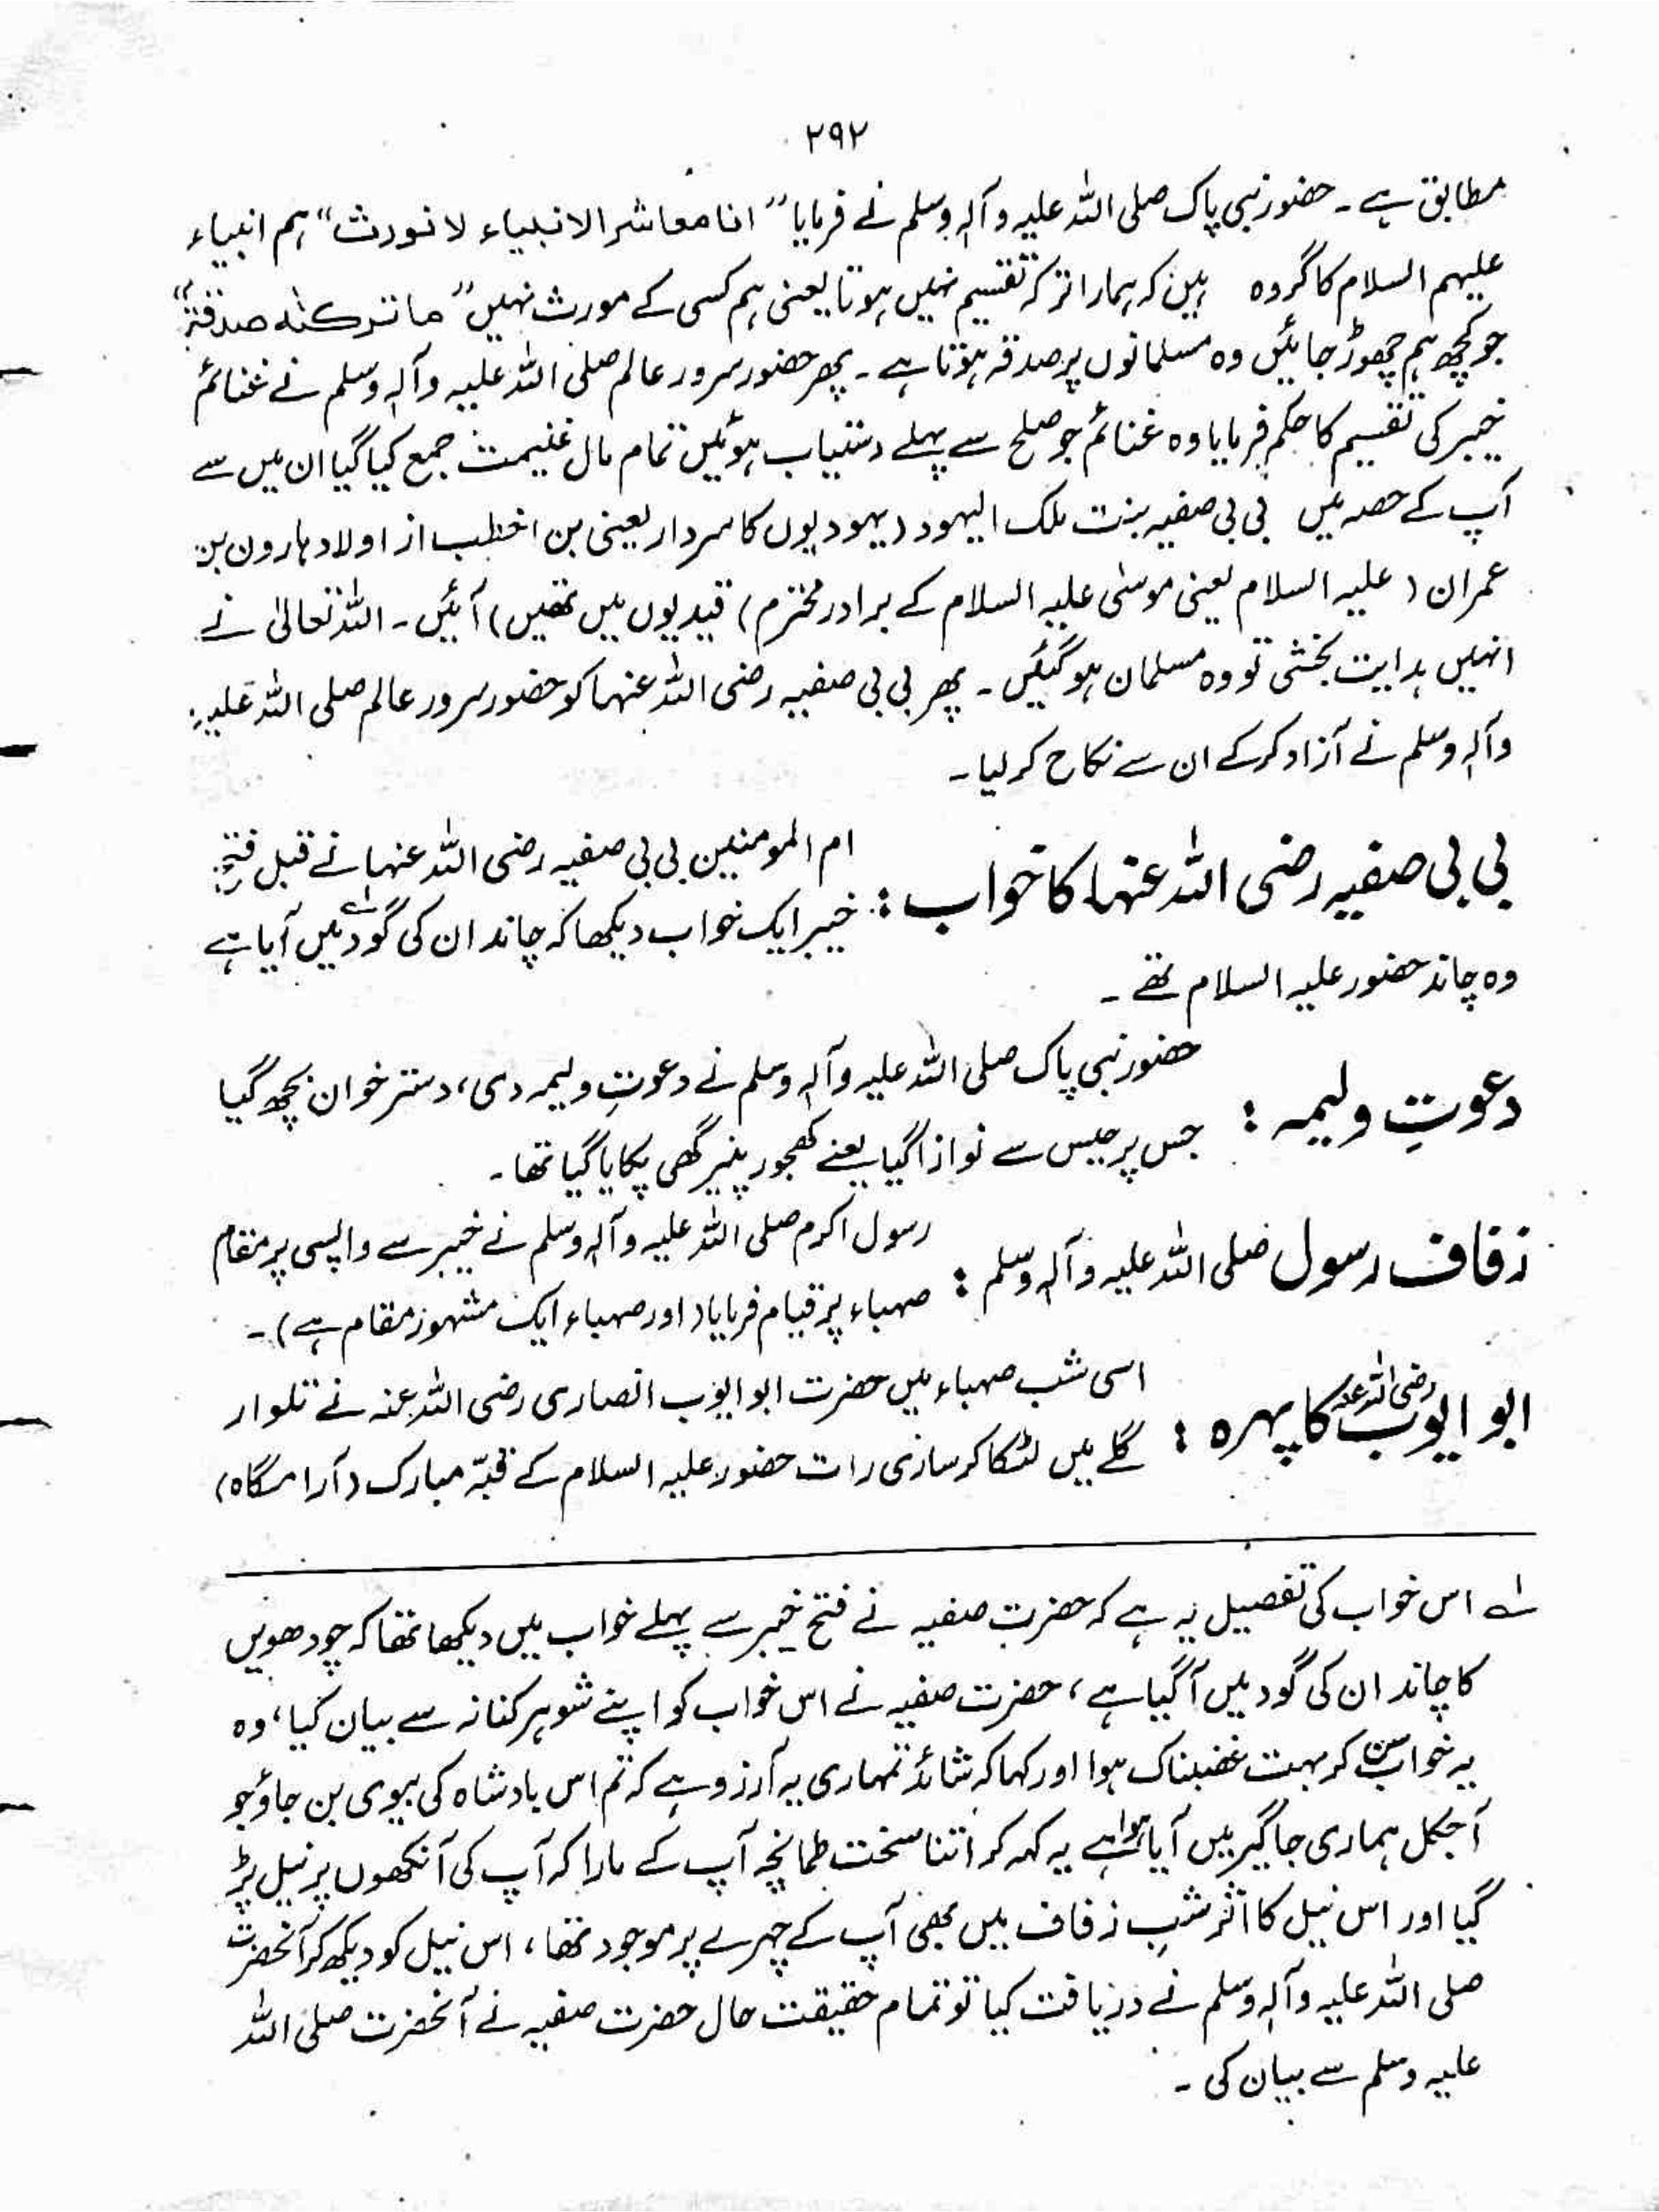 ۲۹۲
مطابق ہے ۔ حضور نبی پاک صلی اللہ علیہ و آلہٖ وسلم نے فرمایا ” انا معاشر الانبیاء لا نورث “ ہم انبیاء
علیہم السلام کا گروہ ہیں کہ ہمارا ترکہ تقسیم نہیں ہوتا یعنی ہم کسی کے مورث نہیں ” ما ترکنٰہ صدقۃ “
جو کچھ ہم چھوڑ جائیں وہ مسلمانوں پر صدقہ ہوتا ہے ۔ پھر حضور سرور عالم صلی اللہ علیہ وآلہٖ وسلم نے غنائم
خیبر کی تقسیم کا حکم فرمایا وہ غنائم جو صلح سے پہلے دستیاب ہوئیں تمام مال غنیمت جمع کیا گیا ان میں سے
آپ کے حصہ میں بی بی صفیہ بنت ملک الیہود ( یہودیوں کا سردار یعنی بن اخطب از اولاد ہارون بن
عمران ( علیہ السلام یعنی موسٰی علیہ السلام کے برادر محترم ) قیدیوں میں تھیں ) آئیں ۔ اللہ تعالیٰ نے
انہیں ہدایت بخشی تو وہ مسلمان ہو گئیں ۔ پھر بی بی صفیہ رضی اللہ عنہا کو حضور سرور عالم صلی اللہ علیہ
وآلہٖ وسلم نے آزاد کر کے ان سے نکاح کر لیا ۔
بی بی صفیہ رضی اللہ عنہا کا خواب : ام المومنین بی بی صفیہ رضی اللہ عنہا نے قبل فتح
خیبر ایک خواب دیکھا کہ چاند ان کی گود میں آیا ہے
وہ چاند حضور علیہ السلام تھے ۔
دعوتِ ولیمہ : حضور نبی پاک صلی اللہ علیہ وآلہٖ وسلم نے دعوتِ ولیمہ دی، دستر خوان بچھ گیا
جس پر حیس سے نوازا گیا یعنے کھجور پنیر گھی پکایا گیا تھا ۔
زفاف رسول صلی اللہ علیہ وآلہٖ وسلم : رسول اکرم صلی اللہ علیہ وآلہٖ وسلم نے خیبر سے واپسی پر مقام
صہباء پر قیام فرمایا ( اور صہباء ایک مشہور مقام ہے ) ۔
ابو ایوب رضی اللہ عنہ کا پہرہ : اسی شب صہباء میں حضرت ابو ایوب انصاری رضی اللہ عنہ نے تلوار
گلے میں لٹکا کر ساری رات حضور علیہ السلام کے قبّہ مبارک ( آرامگاہ )
لے اس خواب کی تفصیل یہ ہے کہ حضرت صفیہ نے فتح خیبر سے پہلے خواب میں دیکھا تھا کہ چودھویں
کا چاند ان کی گود میں آ گیا ہے ، حضرت صفیہ نے اس خواب کو اپنے شوہر کنانہ سے بیان کیا، وہ
یہ خواب سن کر بہت غضبناک ہوا اور کہا کہ شائد تمہاری یہ آرزو ہے کہ تم اس بادشاہ کی بیوی بن جاؤ جو
آجکل ہماری جاگیر میں آیا ہوا ہے یہ کہہ کر اتنا سخت طمانچہ آپ کے مارا کہ آپ کی آنکھوں پر نیل پڑ
گیا اور اس نیل کا اثر شبِ زفاف میں بھی آپ کے چہرے پر موجود تھا ، اس نیل کو دیکھ کر آنحضرت
صلی اللہ علیہ وآلہٖ وسلم نے دریافت کیا تو تمام حقیقت حال حضرت صفیہ نے آنحضرت صلی اللہ
علیہ وسلم سے بیان کی ۔